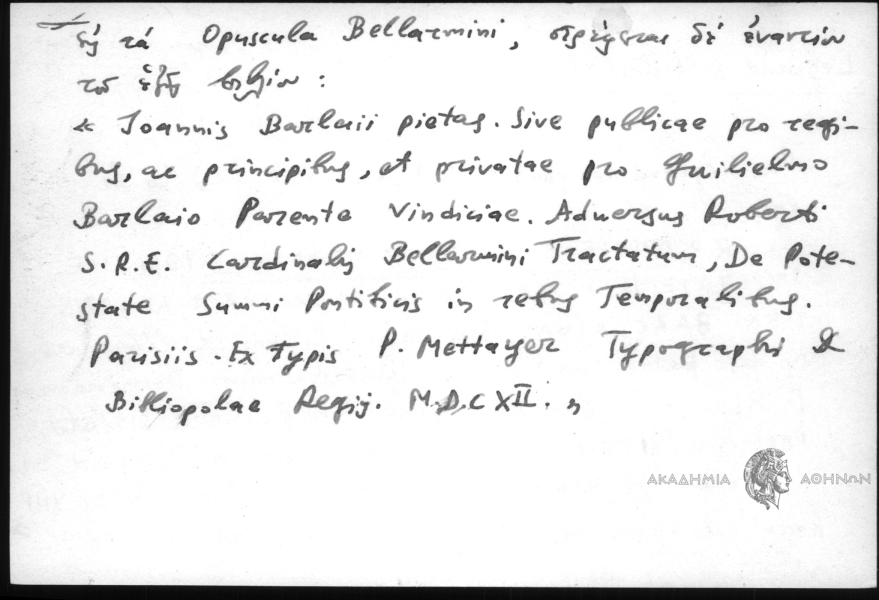 τά Opuscula Bellarmini, στρέφεται δέ ἐναντίον
τοῦ ἑξῆς βιβλίου :
« Joannis Barlaii pietas. Sive publicae pro regi-
bus, ac principibus, et privatae pro Guilielmo
Barlaio Parente Vindiciae. Aduersus Roberti
S.R.E. Cardinalis Bellarmini Tractatum, De Pote-
state Summi Pontificis in rebus Temporalibus.
Parisiis. Ex Typis P. Mettayer Typographi &
Bibliopolae Regij. M.D.C XII. »
ΑΚΑΔΗΜΙΑ ΑΘΗΝΩΝ